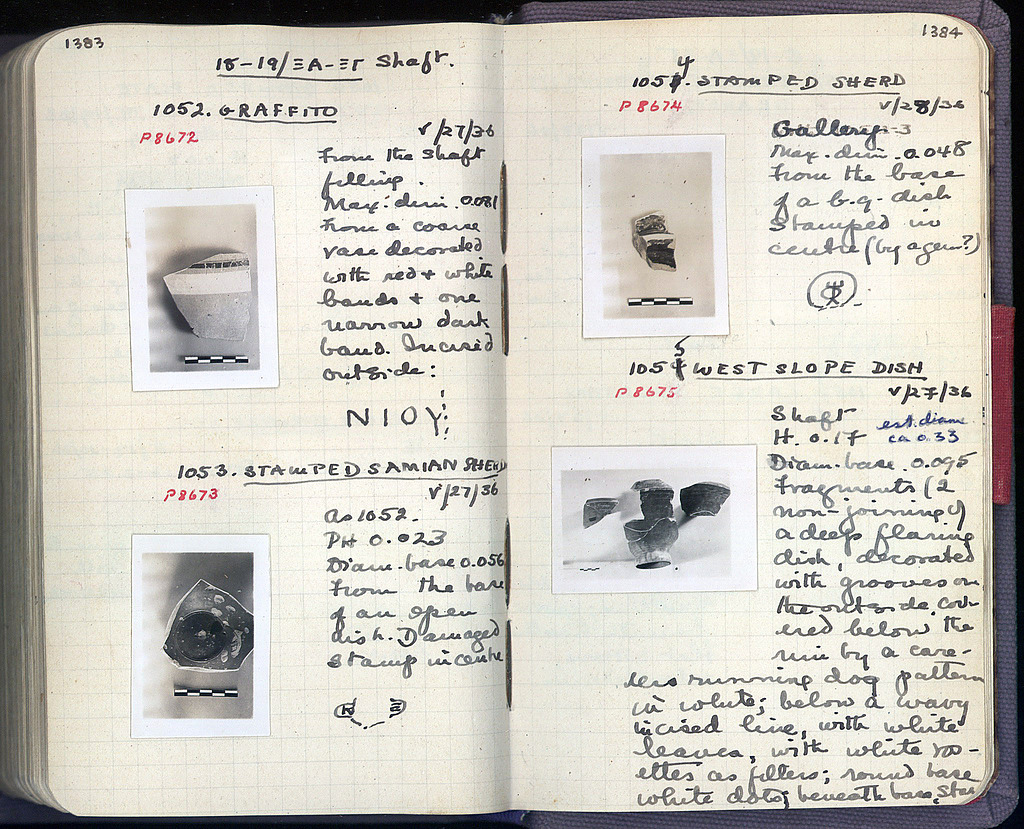 1383
18-19/ΞΑ-ΞΓ Shaft.
1052. GRAFFITO
P 8672
V/27/36
From the shaft
filling.
Max. dim. 0.081
From a coarse
vase decorated
with red + white
bands + one
narrow dark
band. Incised
outside:
ΝΙΟΥ
1053. STAMPED SAMIAN SHERD
P 8673
V/27/36
As 1052.
PH 0.023
Diam. base 0.056
From the base
of an open
dish. Damaged
stamp in centre
1384
1054. STAMPED SHERD
P 8674
V/28/36
Gallery-3
Max. dim. 0.048
From the base
of a b.g. dish
Stamped in
centre (by a gem?)
1055 WEST SLOPE DISH
P 8675
V/27/36
Shaft
est. diam
H. 0.17 ca 0.33
Diam. base. 0.095
Fragments (2
non-joining) of
a deep flaring
dish, decorated
with grooves on
the outside, cov-
ered below the
rim by a care-
less running dog pattern
in white; below a wavy
incised line, with white
leaves, with white ros-
ettes as fillers; round base
white dots; beneath base, star